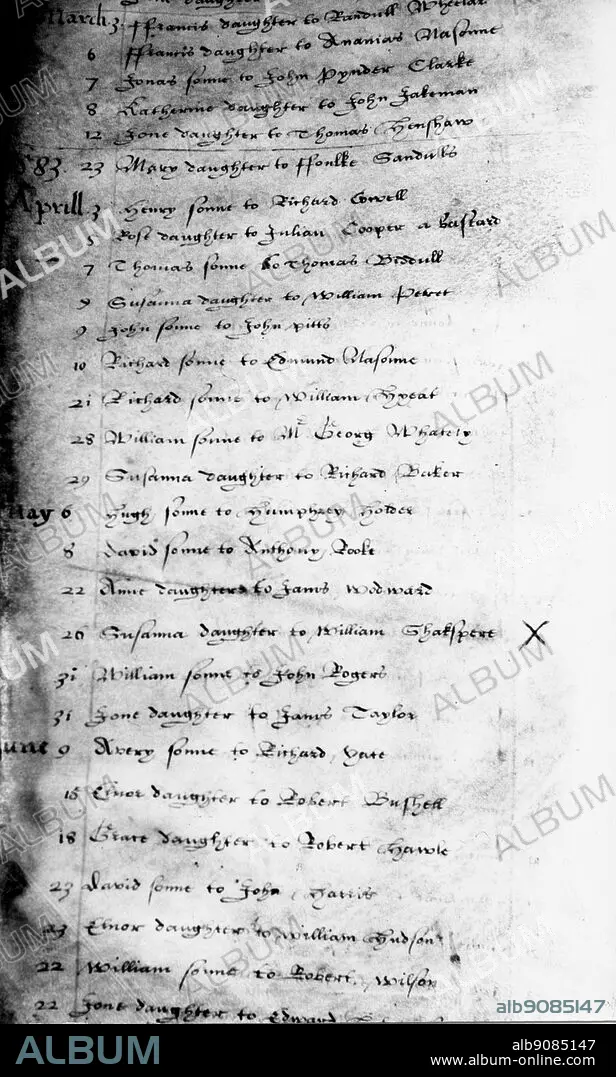 daughter to
March 3 ffrancis daughter to Randull Wheelar
6 ffrancis daughter to Ananias Nasonne
7 Jonas sonne to John Pynder Clarke
8 Katherine daughter to John Jakeman
12 Jone daughter to Thomas Henshaw
1583 23 Mary daughter to ffoulke Sandulls
Aprill 3 Henry sonne to Richard Cowell
5 Rose daughter to Julian Cooper a bastard
7 Thomas sonne to Thomas Biddull
9 Susanna daughter to William Peret
9 John sonne to John pitts
10 Richard sonne to Edmund Nasonne
21 Richard sonne to William Hyeat
28 William sonne to Mr Georg Whately
29 Susanna daughter to Richard Baker
May 6 Hugh sonne to Humphrey Holder
8 David sonne to Anthony Rooke
22 Anne daughter to Jams Wodward
26 Susanna daughter to William Shakspere X
31 William sonne to John Rogers
31 Jone daughter to Jams Taylor
June 9 Avery sonne to Richard Yate
15 Elnor daughter to Robert Bushell
18 Grace daughter to Robert Hawle
23 David sonne to John Harris
23 Elnor daughter to William Hudson
22 William sonne to Robert Wilson
22 Jone daughter to Edward
alb9085147
ALBUM
alb9085147
www.album-online.com